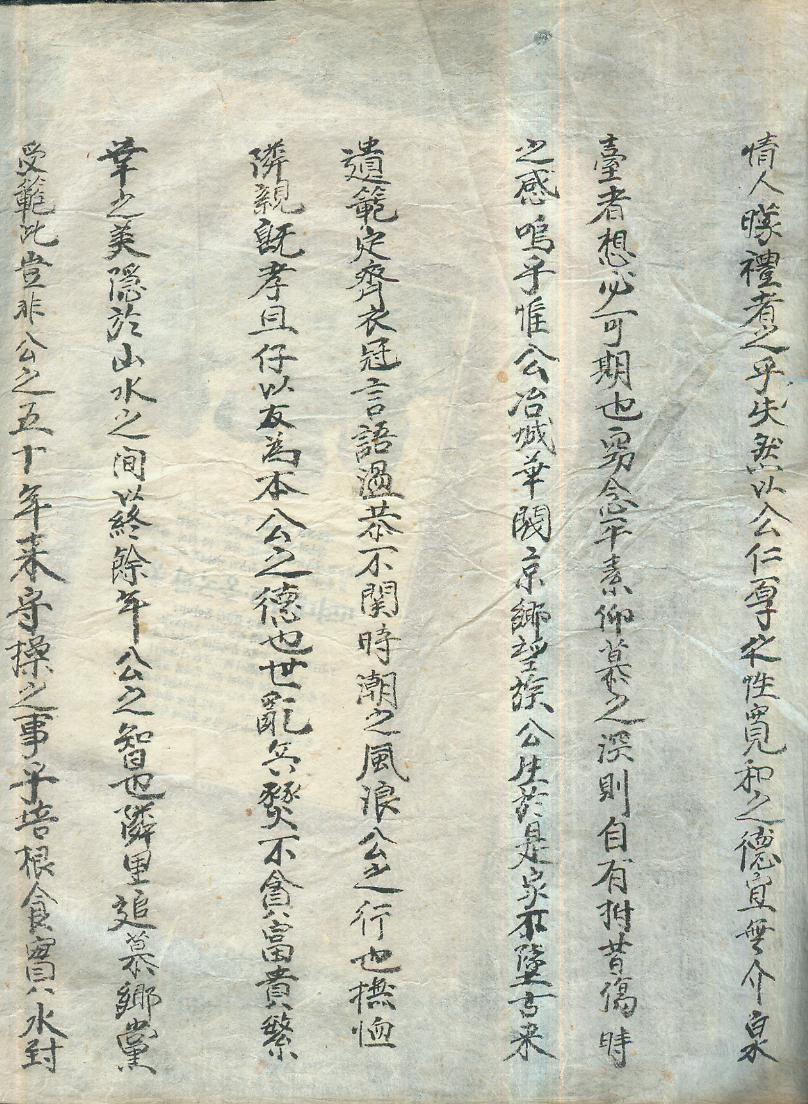 情人矇禮者之乎失然以公仁厚之性寬和之德宜無介泉
臺者想必可期也竊念平素仰慕之深則自有拊昔傷時
之感嗚乎惟公冶城華閥京鄉望族公生於是家不墜古来
遺範定齊衣冠言語溫恭不関時潮之風浪公之行也撫恤
隣親旣孝且仔以友為本公之德也世亂兵燹不貪富貴繁
華之美隱於山水之間以終餘年公之智也隣里追慕鄉黨
受範此豈非公之五十年来守操之事乎培根食實八水封